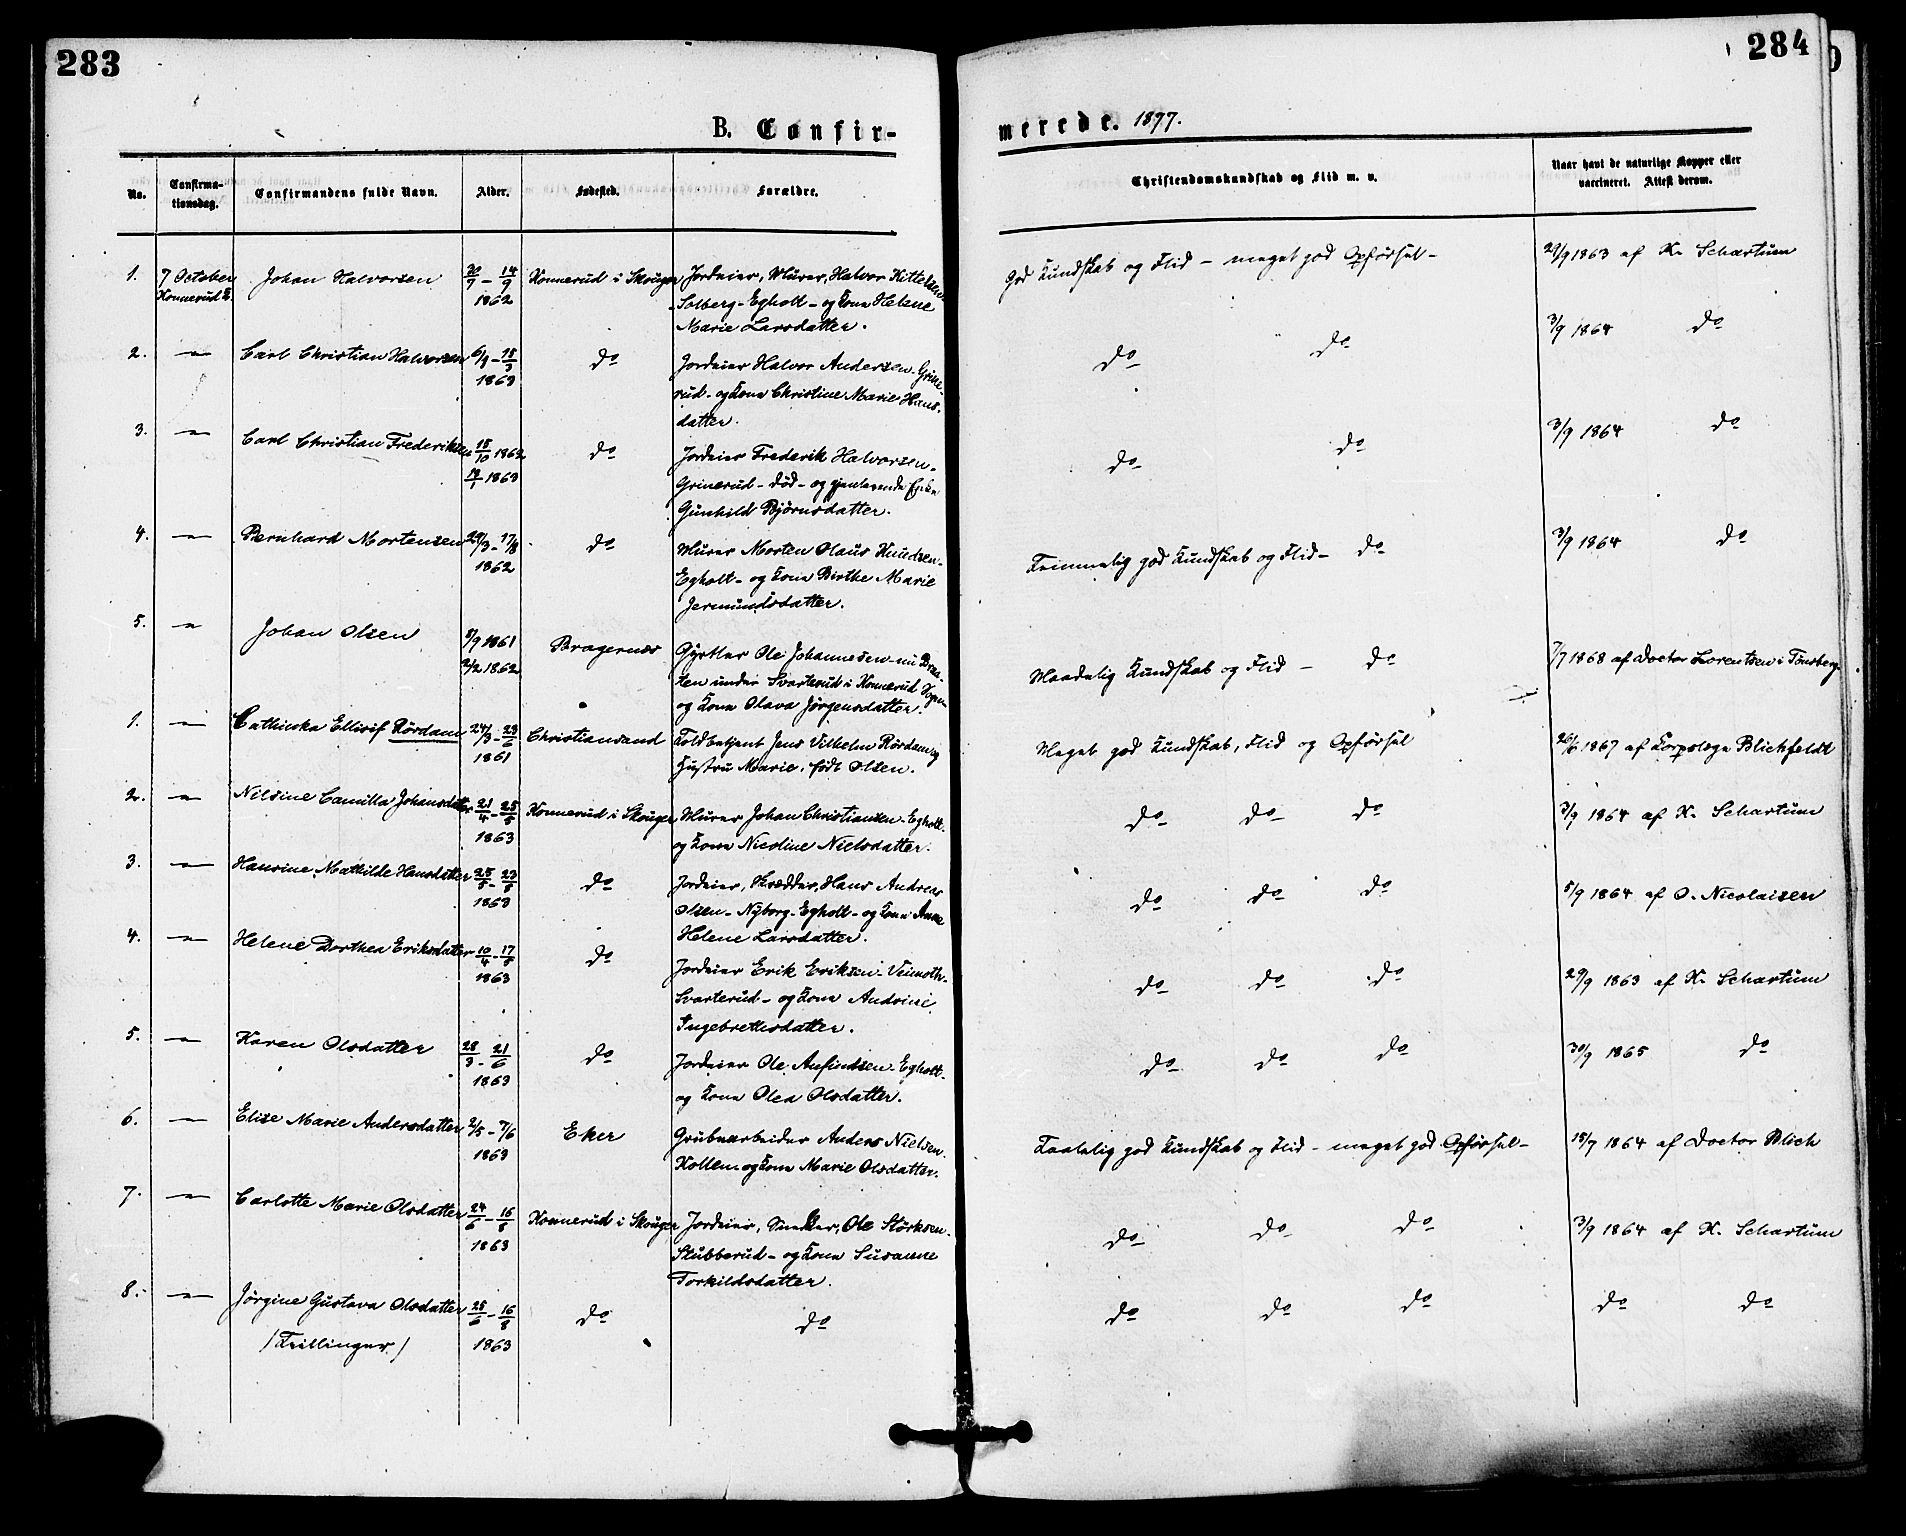 283
284
B. Confir-
merede. 1877.
No.
Confirma-
tionsdag.
Confirmandens fulde Navn.
Alder.
Fødested.
Forældre.
Christendomskundskab og Flid m. v.
Naar havt de naturlige Kopper eller
vaccineret. Attest derom.
1. 7 October Johan Halvorsen 14/9 Konnerud i Skouger Jordeier, Murer, Halvor Kittelsen
Konnerud K. 1862 Solberg-Egholt- og Kone Helene
Marie Larsdatter.
God Kundskab og Flid - meget god Opførsel- 29/9 1863 af K. Schartum
2. -"- Carl Christian Halvorsen 6/1-15/3 do Jordeier Halvor Andersen-Grine-
1863 rud- og Kone Christine Marie Hans-
datter.
do do 3/9 1864 do
3. -"- Carl Christian Frederiksen 15/10 1862 do Jordeier Frederik Halvorsen-
1863 Grinerud- død- og gjenlevende Enke
Gunhild Bjørnsdatter.
do do 3/9 1864 do
4. -"- Bernhard Mortensen 29/3-17/8 do Murer Morten Olaus Knudsen-
1862 Egholt- og Kone Birthe Marie
Jermundsdatter.
Temmelig god Kundskab og Flid- do 3/9 1864 do
5. -"- Johan Olsen 8/9 1861 Bragernæs Gjørtler Ole Johannesen-nu Braa-
2/2 1862 ten under Svarterud i Konnerud Sogn
og Kone Olava Jørgensdatter.
Maadelig Kundskab og Flid - do 7/7 1868 af Doctor Lorentsen i Tønsberg
1. -"- Cathinka Ellisif Rørdam 24/3-23/6 Christiansand Toldbetjent Jens Vilhelm Rørdam og
1861 Hustru Marie, født Olsen.
Meget god Kundskab, Flid og Opførsel 26/6 1867 af Korpslæge Blichfeldt
2. -"- Nilsine Camilla Johansdatter 21/4-25/5 Konnerud i Skouger Murer Johan Christiansen-Egholt-
1863 og Kone Nicoline Nielsdatter.
do do do 3/9 1864 af K. Schartum
3. -"- Hansine Mathilde Hansdatter 25/5-23/8 do Jordeier, Skrædder, Hans Andreas
1863 Olsen-Nyborg-Egholt- og Kone Anne
Helene Larsdatter.
do do do 5/9 1864 af O. Nicolaisen
4. -"- Helene Dorthea Eriksdatter 10/4-17/5 do Jordeier Erik Eriksen-
1863 Svarterud- og Kone Andrine
Ingebrethsdatter.
do do do 29/9 1863 af K. Schartum
5. -"- Karen Olsdatter 28/3-21/6 do Jordeier Ole Anfindsen-Egholt-
1863 og Kone Olea Olsdatter.
do do do 30/9 1865 do
6. -"- Elise Marie Andersdatter 2/5-7/6 Eker Grubearbeider Anders Nielsen-
1863 Kollen-og Kone Marie Olsdatter.
Taalelig god Kundskab og Flid - meget god Opførsel- 15/7 1864 af Doctor Blich
7. -"- Carlotte Marie Olsdatter 24/6-16/8 Konnerud i Skouger Jordeier, Snedker, Ole Størksen-
1863 Stubberud- og Kone Susanne
Torkildsdatter.
do do do 3/9 1864 af K. Schartum
8. -"- Jørgine Gustava Olsdatter 25/6-16/8 do do
/Tvillinger./ 1863
do do do do do